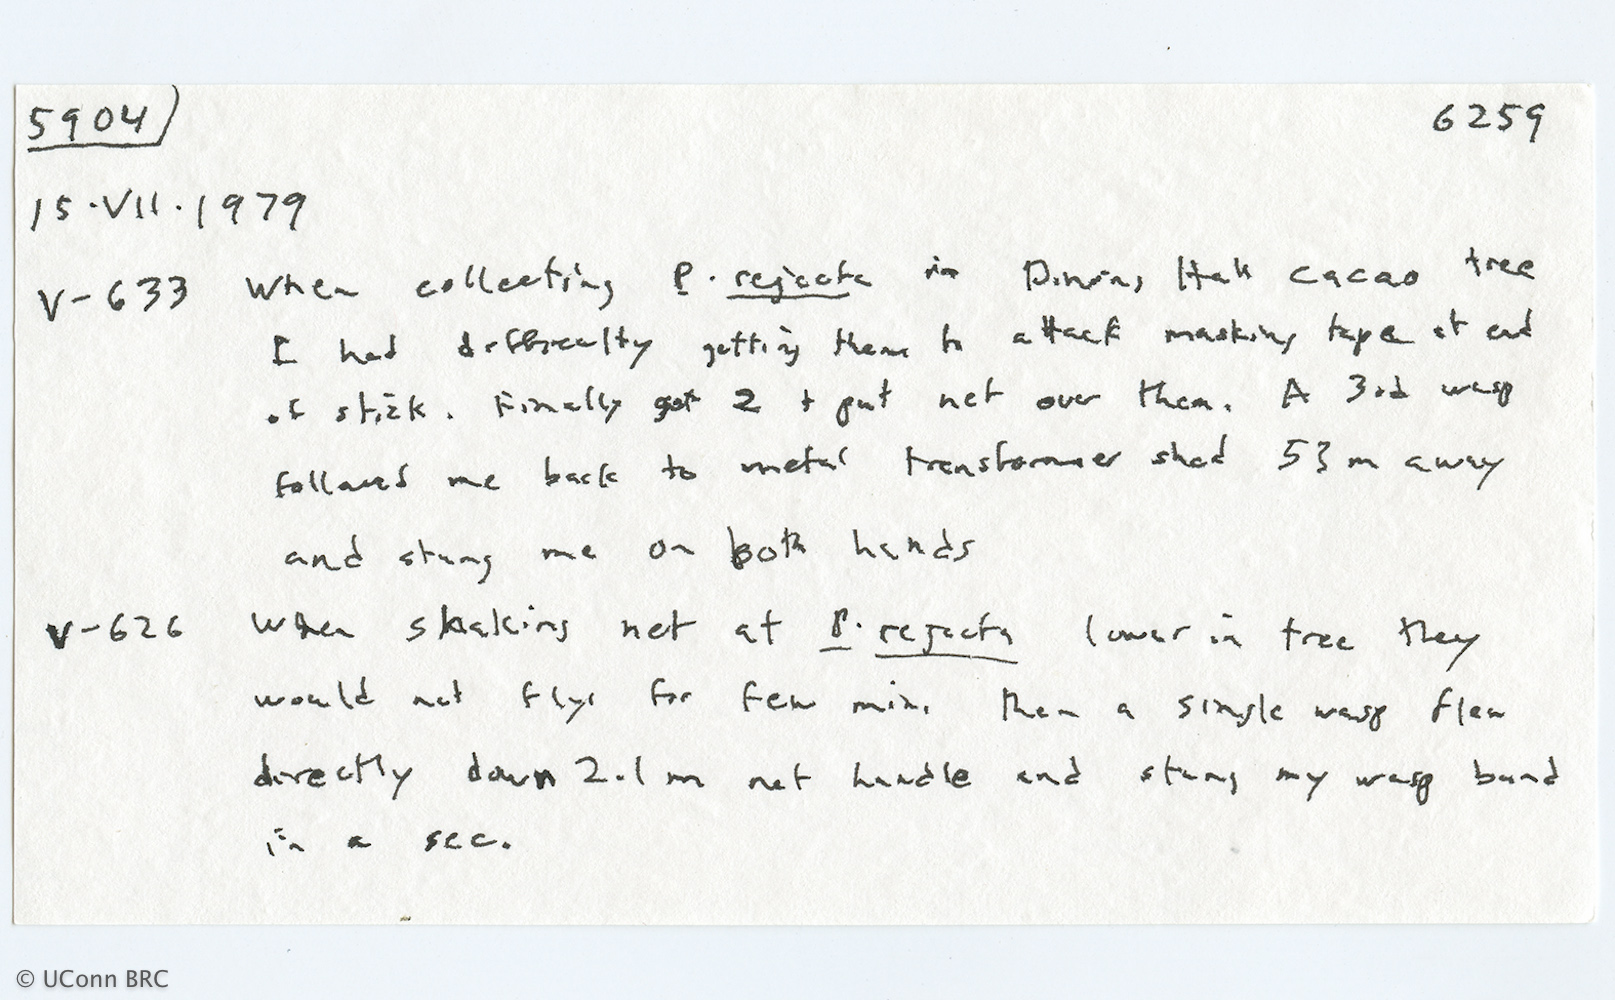 5904 6259
15.VII.1979
V-633 When collecting P. rejecta in Dining Hall cacao tree
I had difficulty getting them to attack masking tape at end
of stick. Finally got 2 + put net over them. A 3rd wasp
followed me back to metal transformer shed 53 m away
and stung me on both hands
V-626 When shaking net at P. rejecta lower in tree they
would not fly for few min. Then a single wasp flew
directly down 2.1 m net handle and stung my wasp hand
in a sec.
© UConn BRC